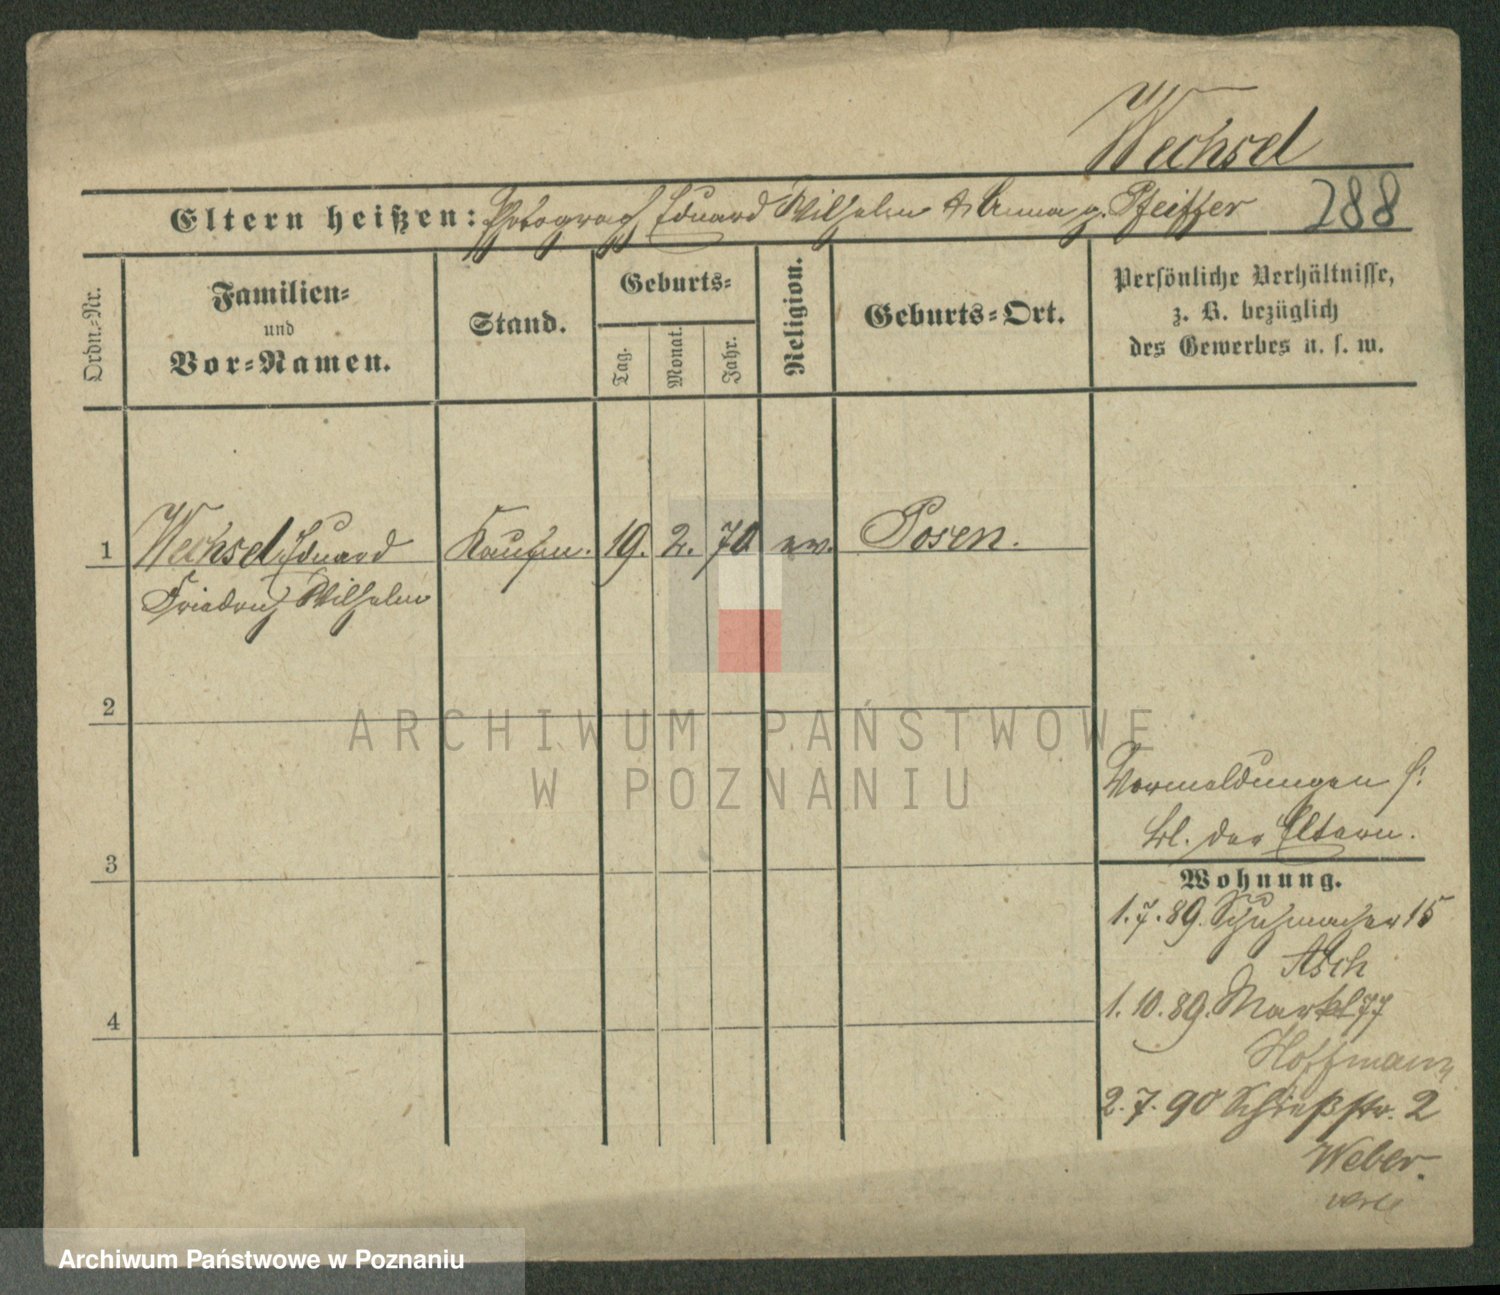 Wechsel
Eltern heißen: Photograph Eduard Wilhelm & Anna g. Pfeiffer 288
Ordn.-Nr.
Familien-
und
Vor-Namen.
Stand.
Geburts-
Tag.
Monat.
Jahr.
Religion.
Geburts-Ort.
Persönliche Verhältnisse,
z. B. bezüglich
des Gewerbes u. s. w.
1 Wechsel Eduard Kaufm. 19. 2. 70 ev. Posen.
Friedrich Wilhelm
2
ARCHIWUM PAŃSTWOWE
W POZNANIU
Vormeldungen s.
bl. der Eltern.
3
Wohnung.
1.7.89. Schuhmacher 15
Asch
1.10.89. Markt 77
Hoffmann
4
2.7.90 Schießstr. 2
Weber.
Archiwum Państwowe w Poznaniu